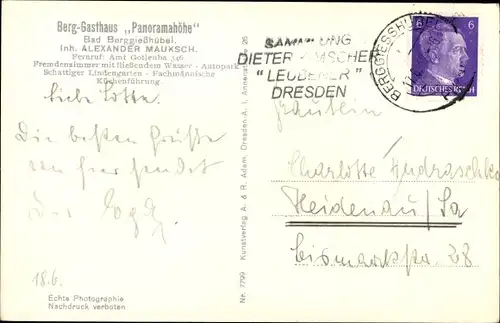 Berg-Gasthaus „Panoramahöhe"
Bad Berggießhübel
Inh. ALEXANDER MAUKSCH.
Fernruf: Amt Gottleuba 346
Fremdenzimmer mit fließendem Wasser - Autopark
Schattiger Lindengarten - Fachmännische
Küchenführung
Liebe Lotte.
Die besten Grüße
von hier sendet
Dir
18.6.
Echte Photographie
Nachdruck verboten
Nr. 7799 Kunstverlag A. & R. Adam, Dresden-A. I, Annenstr. 26
SAMMLUNG
DIETER
"LEUBENER"
DRESDEN
BERGGIESSHÜBEL
6
DEUTSCHES REICH
Fräulein
Charlotte Andraschko
Heidenau/Sa
Bismarckstr. 28